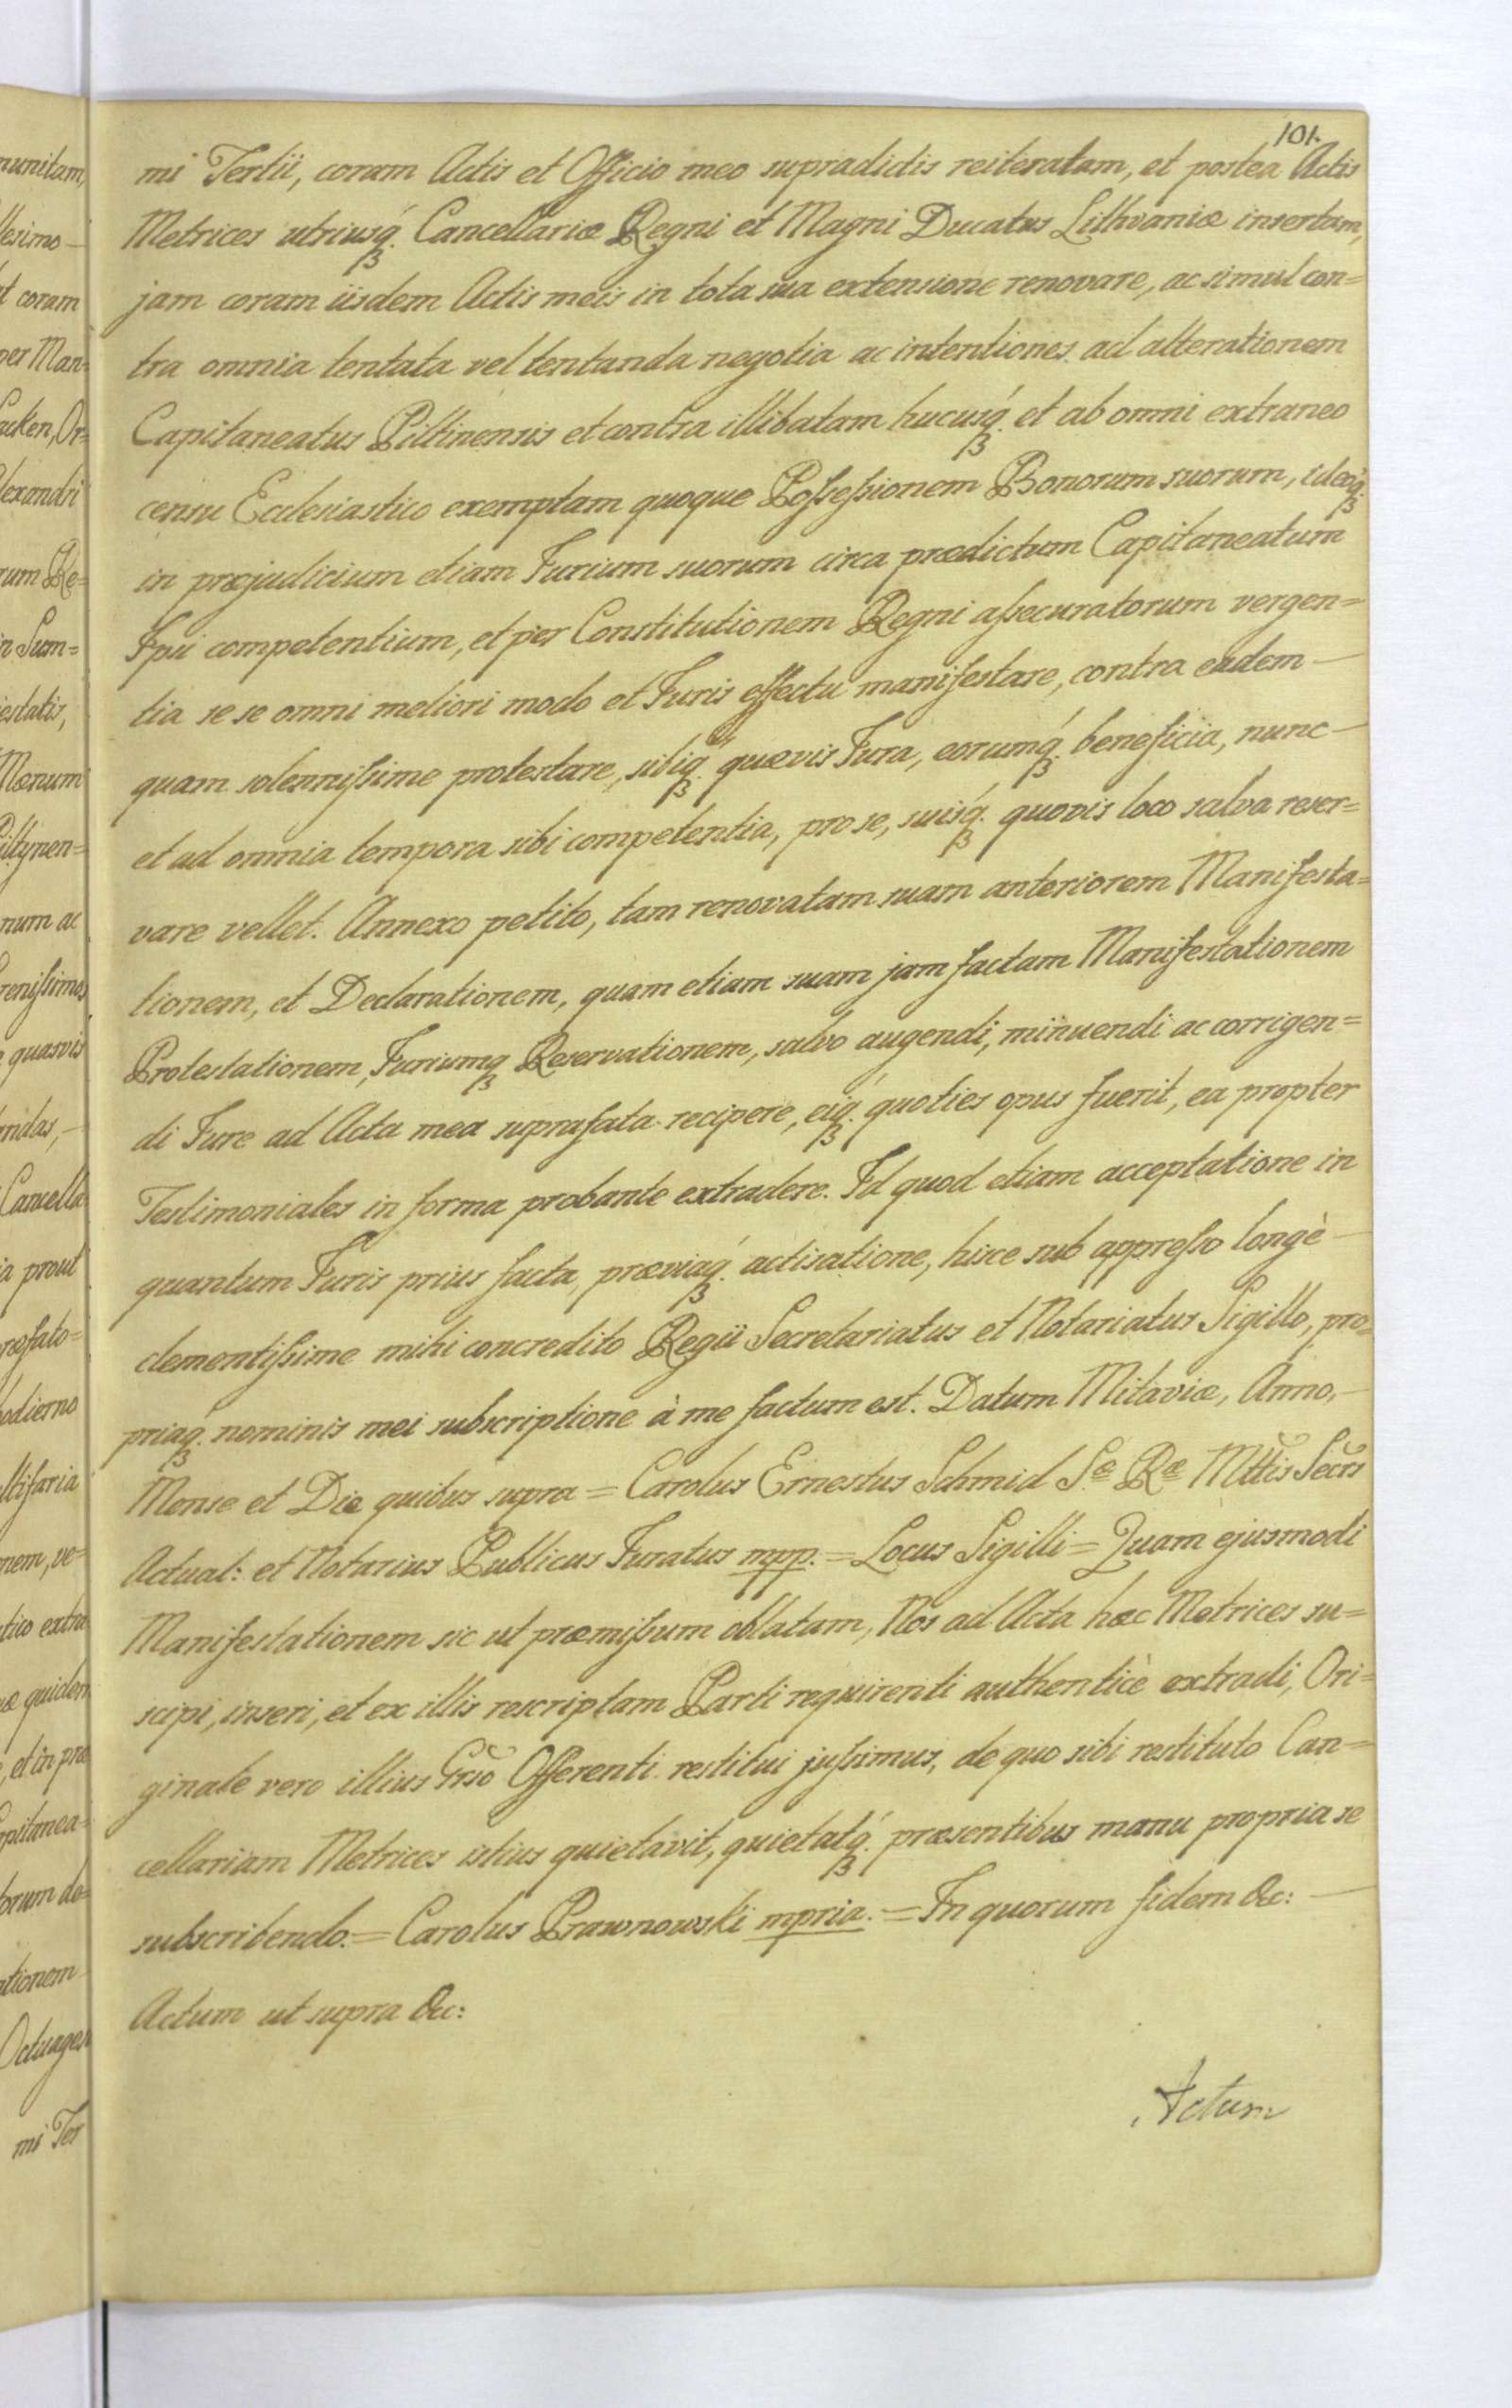 101.
mi Tertii, coram Actis et Officio meo supradictis reiteratam, et postea Actis
Metrices utriusq́ꝫ. Cancellariæ Regni et Magni Ducatus Lithvaniæ insertam,
jam coram iisdem Actis meis in tota sua extensione renovare, ac simul con=
tra omnia tentata vel tentanda negotia ac intentiones ad alterationem
Capitaneatus Piltinensis et contra illibatam hucusq́ꝫ. et ab omni extraneo
censu Ecclesiastico exemptam quoque Poſseſsionem Bonorum suorum, ideoq́ꝫ.
in præjudicium etiam Jurium suorum circa prædictum Capitaneatum
Ipsi competentium, et per Constitutionem Regni aſsecuratorum vergen=
tia se se omni meliori modo et Juris effectu manifestare, contra eadem —
quam solenniſsime protestare, sibiq́ꝫ. quævis Jura, eorumq́ꝫ. beneficia, nunc —
et ad omnia tempora sibi competentia, pro se, suisq́ꝫ. quovis loco salva reser=
vare vellet. Annexo petito, tam renovatam suam anteriorem Manifesta=
tionem, et Declarationem, quam etiam suam jam factam Manifestationem
Protestationem, Juriumqꝫ Reservationem, salvo augendi, minuendi ac corrigen=
di Jure ad Acta mea suprafata recipere, eiq́ꝫ. quoties opus fuerit, ea propter
Testimoniales in forma probante extradere. Id quod etiam acceptatione in
quantum Juris prius facta, præviaq́ꝫ. actisatione, hisce sub appreſso longè —
clementiſsime mihi concredito Regii Secretariatus et Notariatus Sigillo, pro=
priaq́ꝫ. nominis mei subscriptione à me factum est. Datum Mitaviæ, Anno, —
Mense et Die quibus supra = Carolus Ernestus Schmid S.æ Ræ Mttis Secrs
Actual: et Notarius Publicus Juratus mpp. = Locus Sigilli = Quam ejusmodi
Manifestationem sic ut præmiſsum oblatam, Nos ad Acta hæc Metrices su=
scipi, inseri, et ex illis rescriptam Parti requirenti authenticè extradi, Ori=
ginale vero illius Grso Offerenti restitui juſsimus, de quo sibi restituto Can=
cellariam Metrices istius quietavit, quietatq́ꝫ. præsentibus manu propria se
subscribendo. = Carolus Prawnowski mpria. = In quorum fidem &c: —
Actum ut supra &c:
Actum